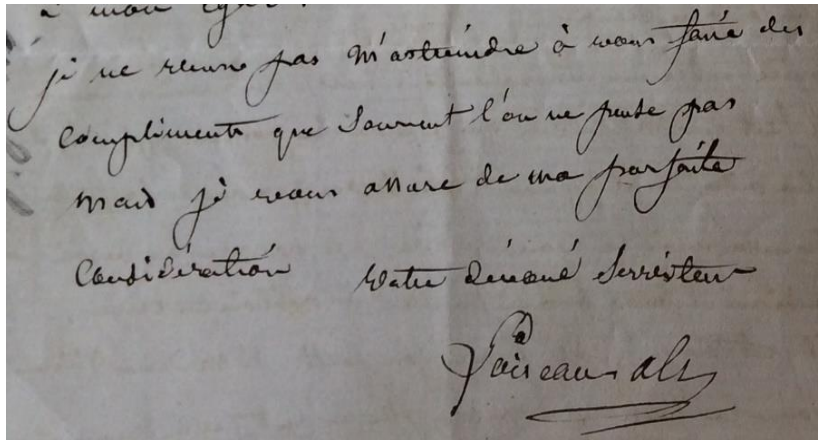 à mon égard
je ne veux pas m'astreindre à vous faire des
compliments que souvent l'on ne pense pas
mais je vous assure de ma parfaite
Considération votre dévoué Serviteur